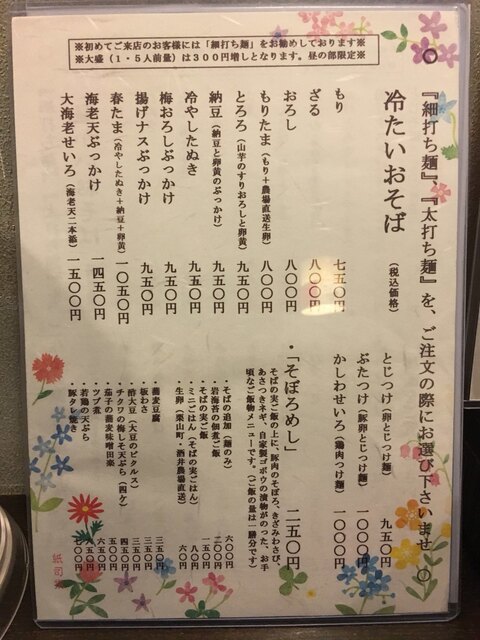 ※初めてご来店のお客様には「細打ち麺」をお勧めしております※
※大盛（1・5人前量）は300円増しとなります。昼の部限定※
〇『細打ち麺』『太打ち麺』を、ご注文の際にお選び下さいませ〇
冷たいおそば（税込価格）
もり 七五〇円
ざる 八〇〇円
おろし 八〇〇円
もりたま（もり＋農場直送生卵） 八〇〇円
とろろ（山芋のすりおろしと卵黄） 九五〇円
納豆（納豆と卵黄のぶっかけ） 九五〇円
冷やしたぬき 九五〇円
梅おろしぶっかけ 九五〇円
揚げナスぶっかけ 九五〇円
春たま（冷やしたぬき＋納豆＋卵黄） 一〇五〇円
海老天ぶっかけ 一四五〇円
大海老せいろ（海老天二本添） 一五〇〇円
とじつけ（卵とじつけ麺） 九五〇円
ぶたつけ（豚卵とじつけ麺） 一〇〇〇円
かしわせいろ（鶏肉つけ麺） 一〇〇〇円
・「そぼろめし」 二五〇円
そばの実ご飯の上に、豚肉のそぼろ、きざみわさび、
あさつきネギ、自家製ゴボウの漬物がのった、お手
頃なご飯物メニューです。（ご飯の量は一膳分です）
・そばの追加（麺のみ） 六〇〇円
・岩海苔の佃煮ご飯 二〇〇円
・そばの実ご飯 一五〇円
・ミニごはん（そばの実ごはん） 八〇円
・生卵（栗山町・酒井農場直送） 六〇円
・蕎麦豆腐 三五〇円
・板わさ 三五〇円
・酢大豆（大豆のピクルス） 三〇〇円
・チクワの梅しそ天ぷら（四ケ） 四五〇円
・茄子の蕎麦味噌田楽 五〇〇円
・ツブ煮 六五〇円
・若鶏の天ぷら
・豚タレ焼き